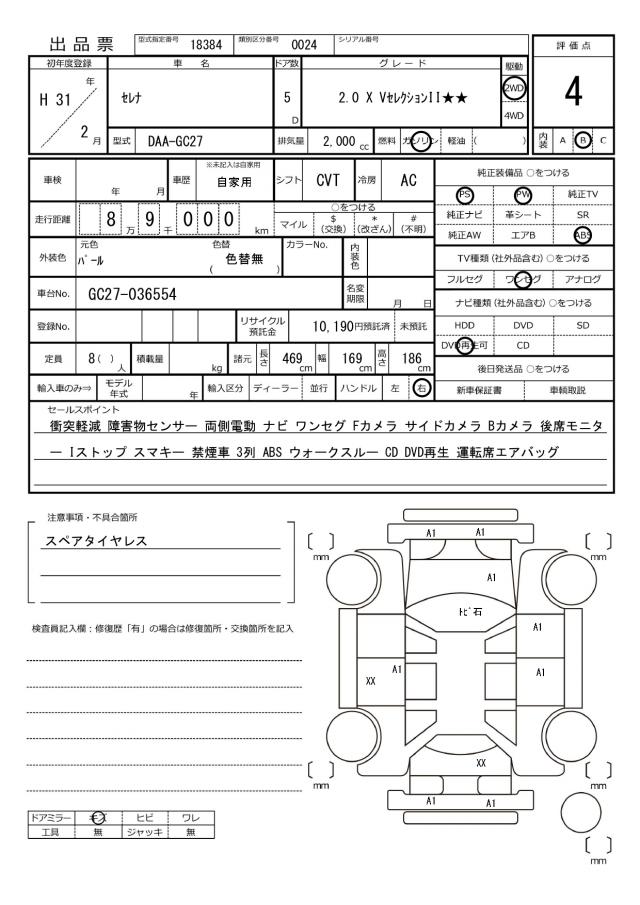 出品票 型式指定番号 18384 類別区分番号 0024 シリアル番号
評価点
初年度登録 車名 ドア数 グレード 駆動
H 31 年 2 月 セレナ 5 D 2.0 X VセレクションII★★ 2WD 4WD
4
型式 DAA-GC27 排気量 2,000 cc 燃料 ガソリン 軽油 ( )
内装 A B C
車検 年 月 車歴 ※未記入は自家用 自家用 シフト CVT 冷房 AC
純正装備品 ○をつける
PS PW 純正TV
走行距離 8 9 0 0 0 万 千 km
○をつける
マイル $(交換) *(改ざん) #(不明)
純正ナビ 革シート SR
純正AW エアB ABS
外装色 元色 パール 色替 色替無 ( ) カラーNo. 内装色
TV種類(社外品含む)○をつける
フルセグ ワンセグ アナログ
車台No. GC27-036554 名変期限 月 日
ナビ種類(社外品含む)○をつける
登録No. リサイクル預託金 10,190円預託済 未預託
HDD DVD SD
DVD再生可 CD
定員 8( )人 積載量 kg 諸元 長さ 469 cm 幅 169 cm 高さ 186 cm
後日発送品 ○をつける
輸入車のみ⇒ モデル年式 年 輸入区分 ディーラー 並行 ハンドル 左 右
新車保証書 車輌取説
セールスポイント
衝突軽減 障害物センサー 両側電動 ナビ ワンセグ Fカメラ サイドカメラ Bカメラ 後席モニタ
ー Iストップ スマキー 禁煙車 3列 ABS ウォークスルー CD DVD再生 運転席エアバッグ
注意事項・不具合箇所
スペアタイヤレス
検査員記入欄:修復歴「有」の場合は修復箇所・交換箇所を記入
A1 A1
mm mm
A1
トビ石
A1
A1 A1
XX
XX
mm mm
A1 A1
mm
ドアミラー キズ ヒビ ワレ
工具 無 ジャッキ 無